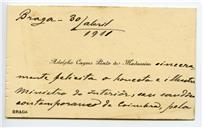 Braga - 30/abril
1911
Adolpho Cayres Pinto de Madureira sincera
mente felicita o honesto e illustre
Ministro do Interior, seu
contemporaneo de Coimbra, pelo
BRAGA